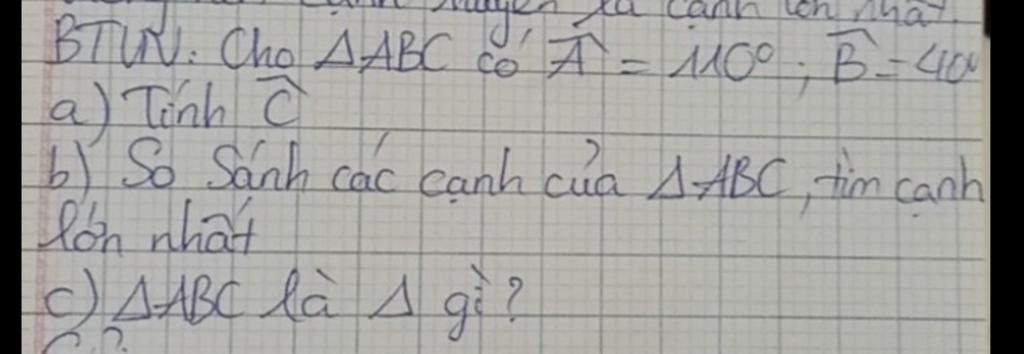 cạnh huyền là cạnh lớn nhất
BTVN: Cho ΔABC có Â = 110°; B̂ = 40°
a) Tính Ĉ
b) So Sánh các cạnh của ΔABC, tìm cạnh
lớn nhất
c) ΔABC là Δ gì?